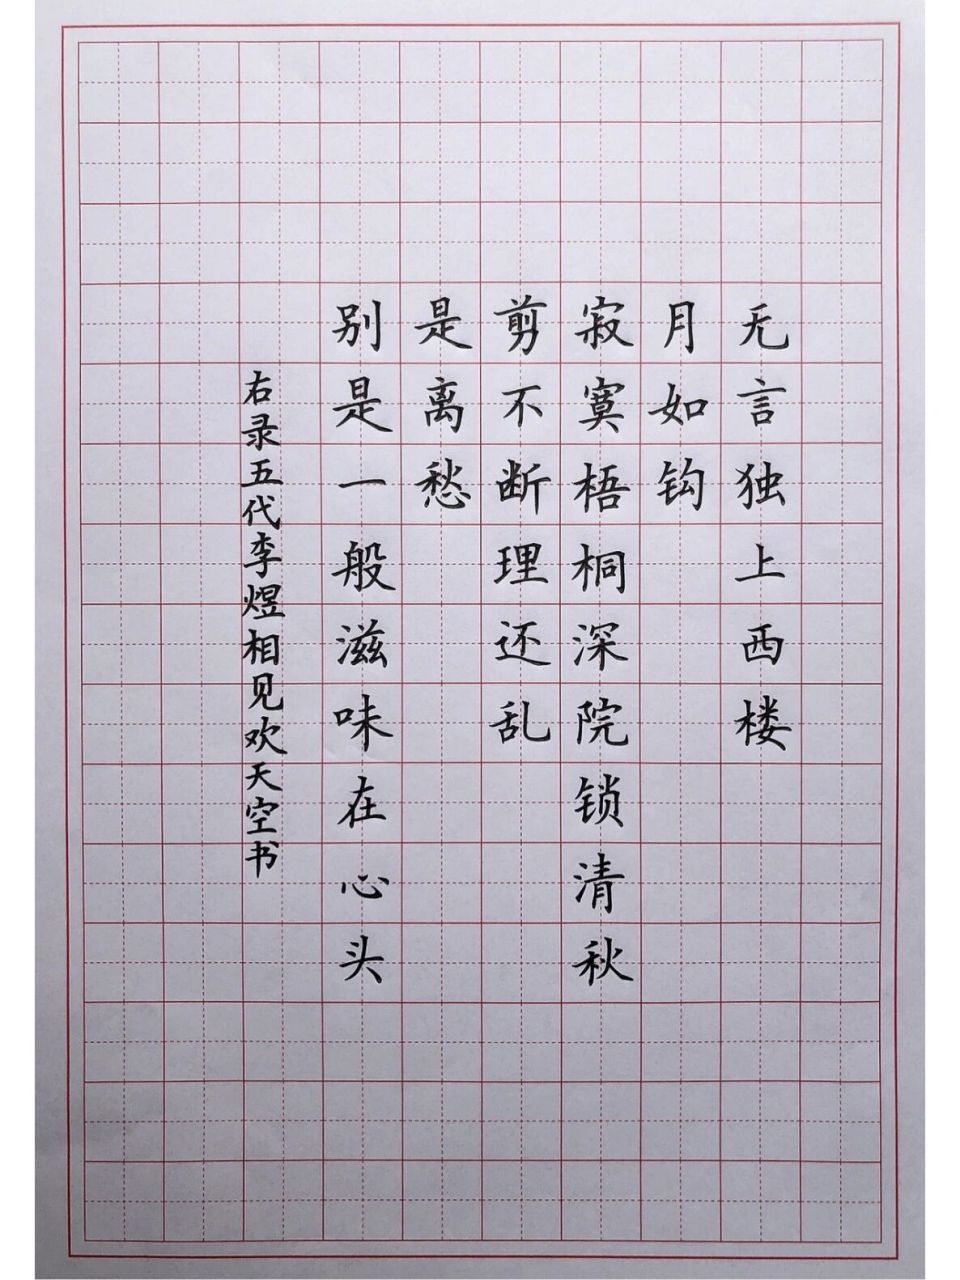 无言独上西楼
月如钩
寂寞梧桐深院锁清秋
剪不断理还乱
是离愁
别是一般滋味在心头
右录五代李煜相见欢天空书